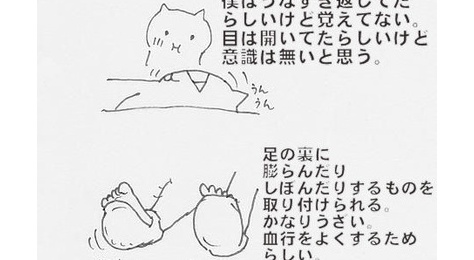 僕はうなずき返してた
らしいけど覚えてない。
目は開いてたらしいけど
意識は無いと思う。
うん
うん
足の裏に
膨らんだり
しぼんだりするものを
取り付けられる。
かなりうさい。
血行をよくするため
らしい。